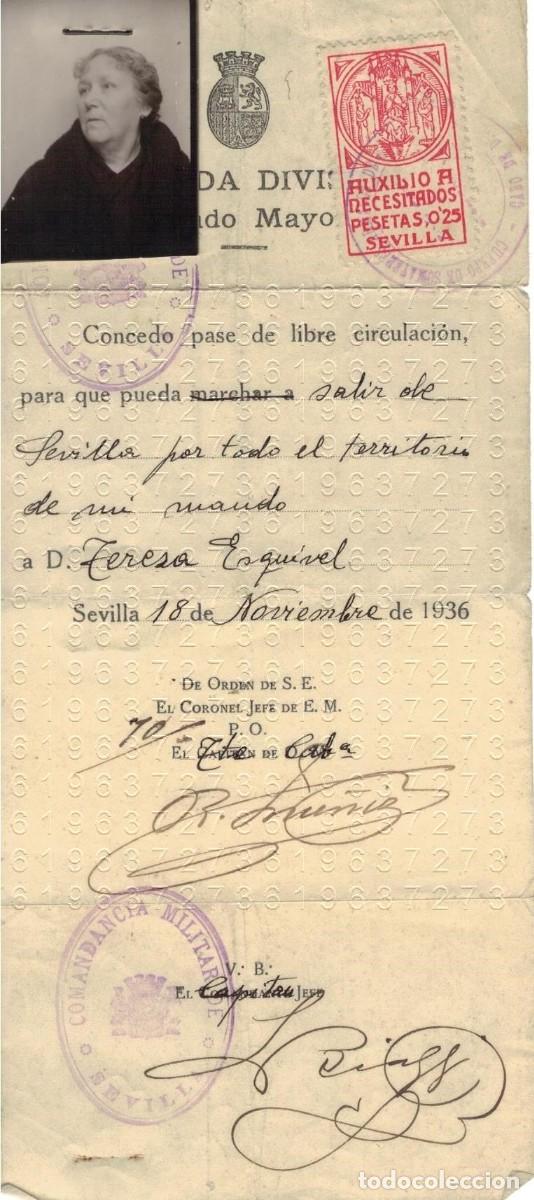 DA DIVIS
do Mayo
AUXILIO A
NECESITADOS
PESETAS, 0'25
SEVILLA
SEVILLA
Concedo pase de libre circulación,
para que pueda marchar a salir de
Sevilla por todo el territorio
de mi mando
a D. Teresa Esquivel
Sevilla 18 de Noviembre de 1936
DE ORDEN DE S. E.
EL CORONEL JEFE DE E. M.
P. O.
EL CAPITÁN DE
R. Muñiz
COMANDANCIA MILITAR DE
SEVILLA
V.º B.º
EL Capitan JEFE
619637273619637273619637273
todocoleccion